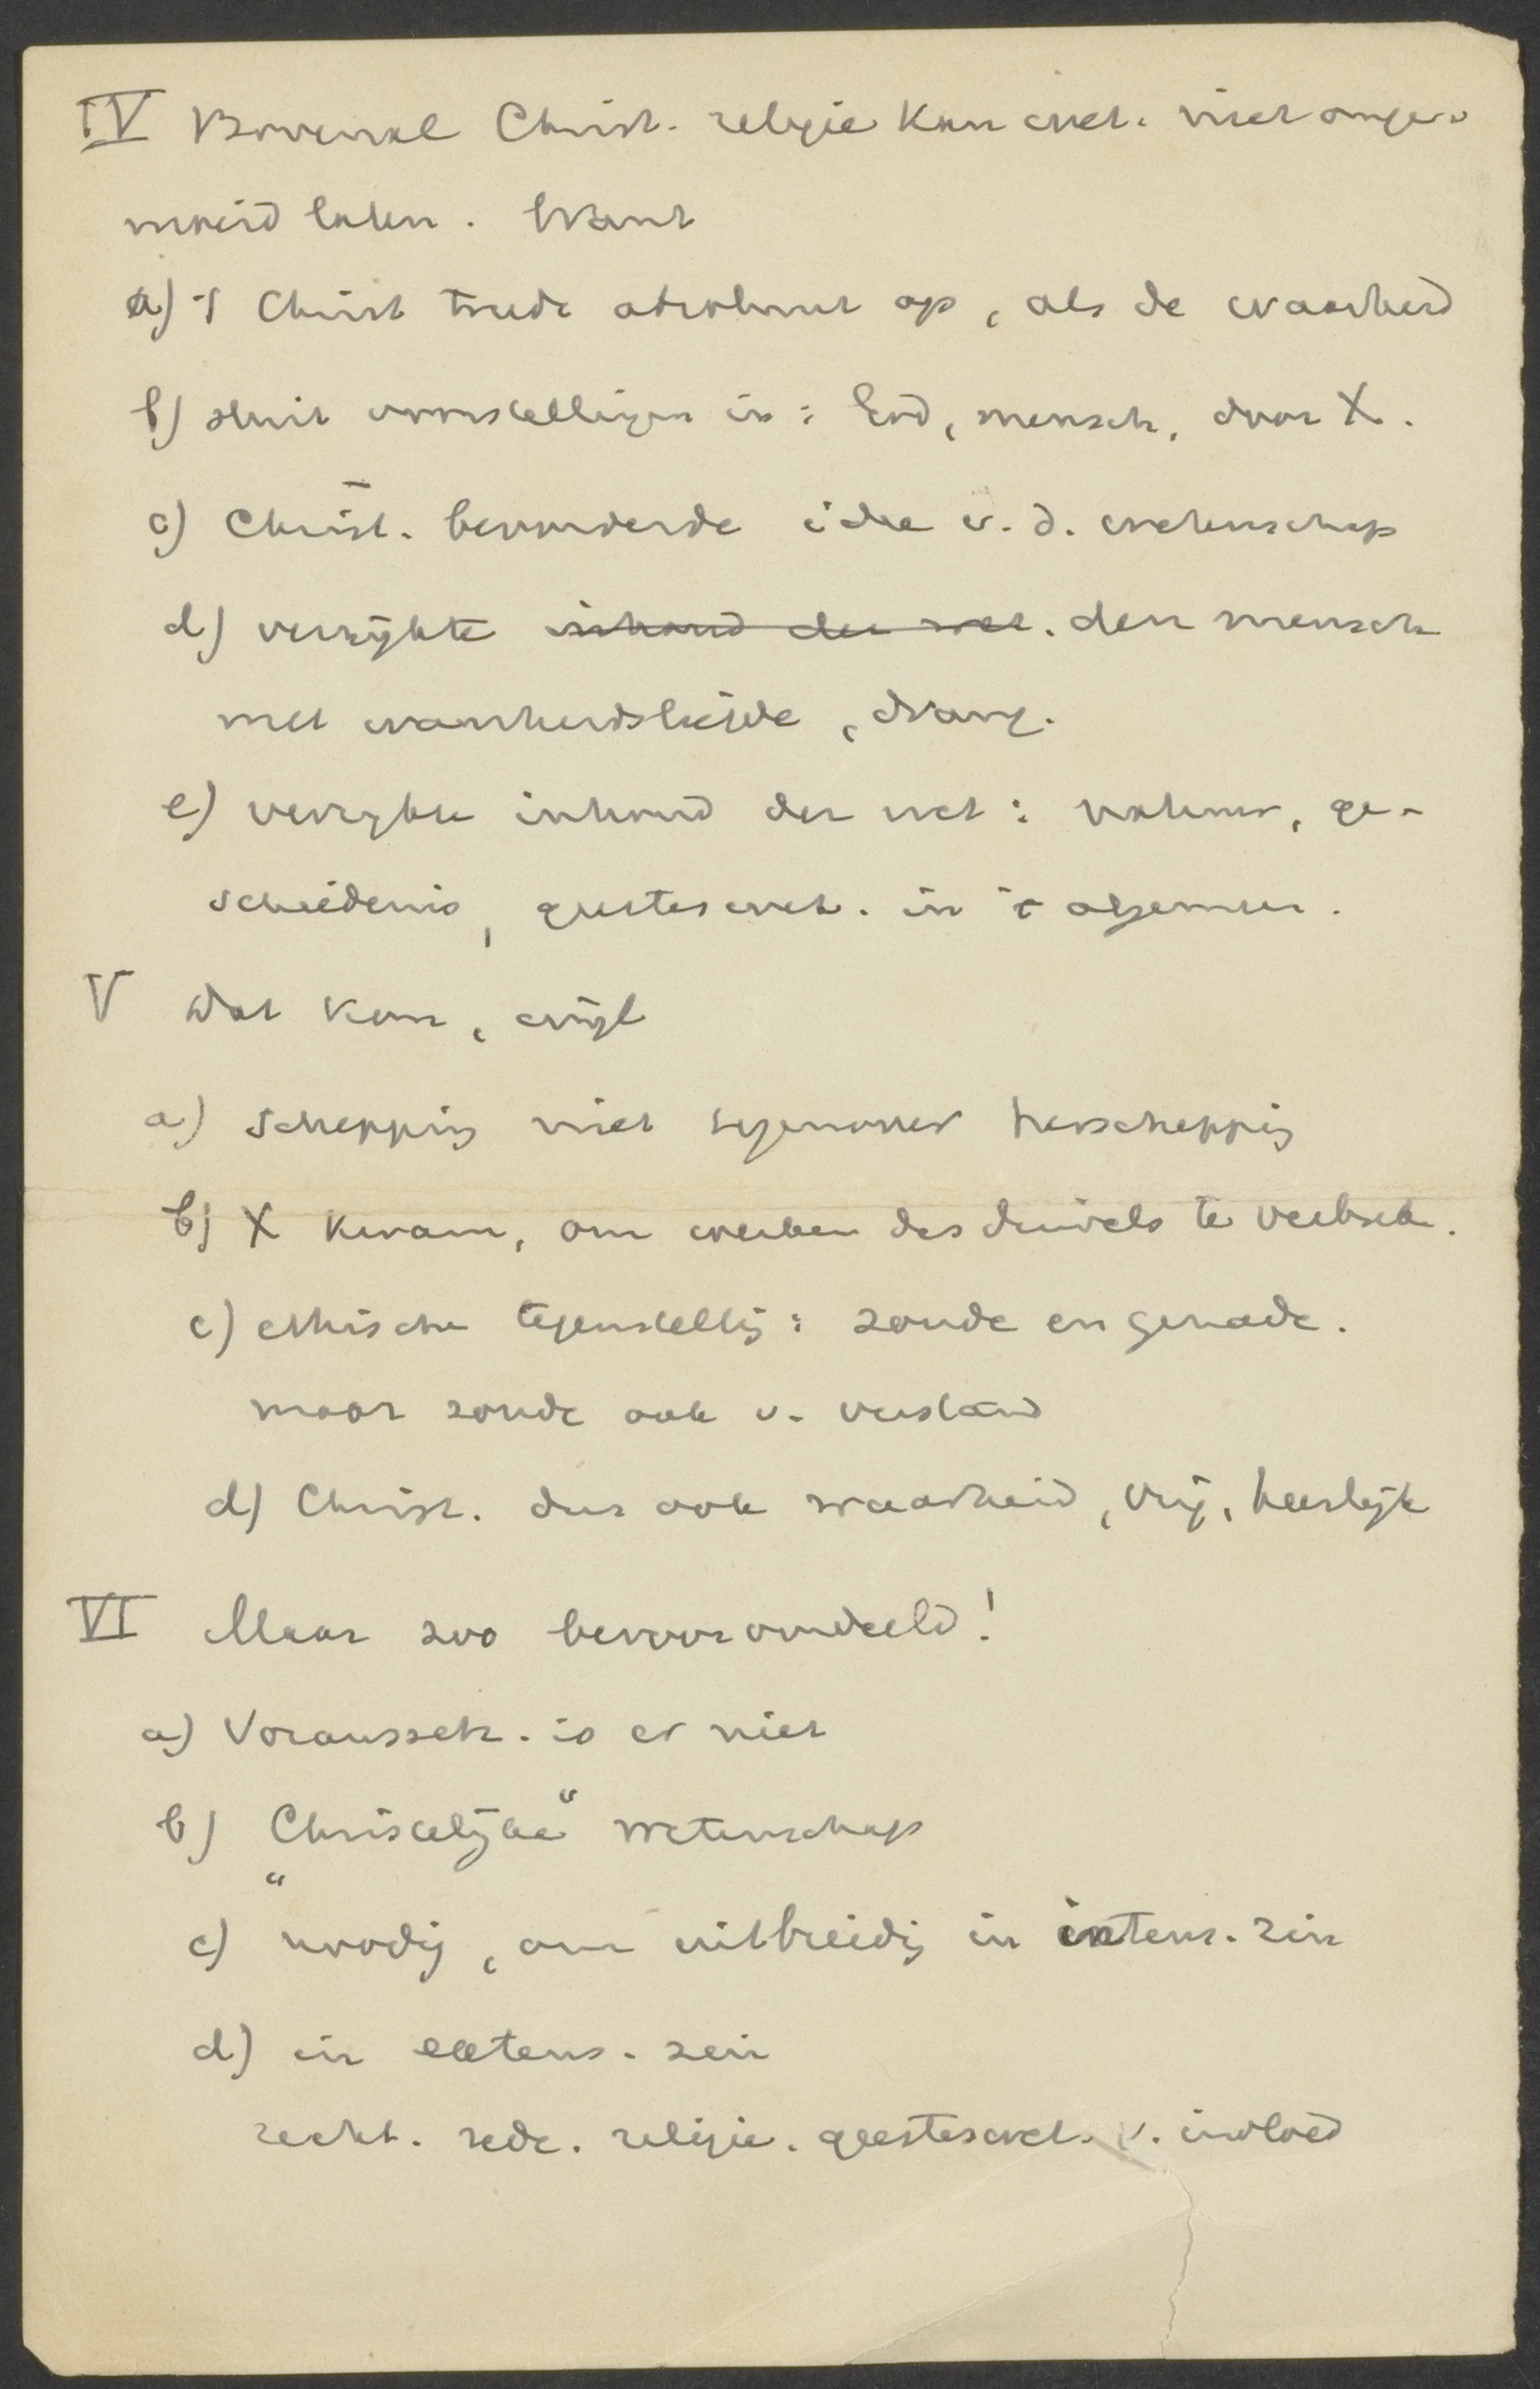 IV Bovenal Christ. religie kan wet. niet onge-
moeid laten. Want
a) 't Christ trede absoluut op, als de waarheid
b) sluit voorstellingen in: God, mensch, door X.
c) Christ. bevorderde idee v. d. wetenschap
d) verrijkte inhoud der wet. den mensch
met waarheidsliefde, drang.
e) verrijkte inhoud der wet: natuur, ge-
schiedenis, geesteswet. in 't algemeen.
V Dat kan, wijl
a) schepping niet tegenover herschepping
b) X kwam, om werken des duivels te verbreken.
c) ethische tegenstellig: zonde en genade.
maar zonde ook v. verstand
d) Christ. dus ook waarheid, vrij, heerlijk
VI Maar zoo bevooroordeeld!
a) Voraussetz. is er niet
b) "Christelijke" wetenschap
c) noodig, om uitbreidig in intens. zin
d) in extens. zin
recht. zede. religie. geesteswet. v. invloed